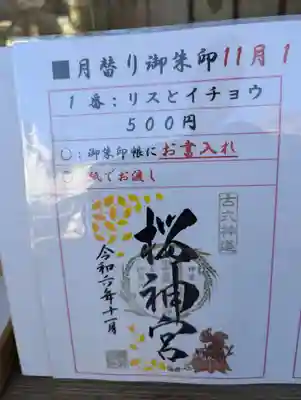 ■月替り御朱印11月1
1番：リスとイチョウ
500円
○：御朱印帳にお書入れ
○：紙でお渡し
古式神道
桜神宮
令和六年十一月